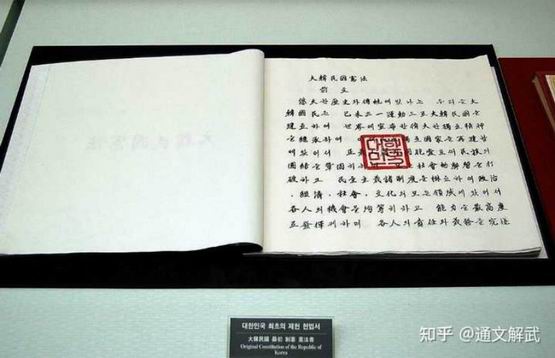 大韓民國憲法
前文
悠久한歷史와傳統에빛나는 우리들大
韓國民은 己未三一運動으로大韓民國을
建立하여 世界에宣布한偉大한獨立精神
을繼承하여 立國家를再建함
에있어서 正義 同胞愛로써民族의
團結을鞏固히 社會的弊習을打
破하고 民主主義諸制度를樹立하여政治
、經濟、社會、文化의모든領域에있어서
各人의機會를均等히하고 能力을最高度
로發揮케하며 各人의責任과義務를完遂
대한민국
대한민국 최초의 제헌 헌법서
大韓民國 最初 制憲 憲法書
Original Constitution of the Republic of
Korea
知乎 @通文解武